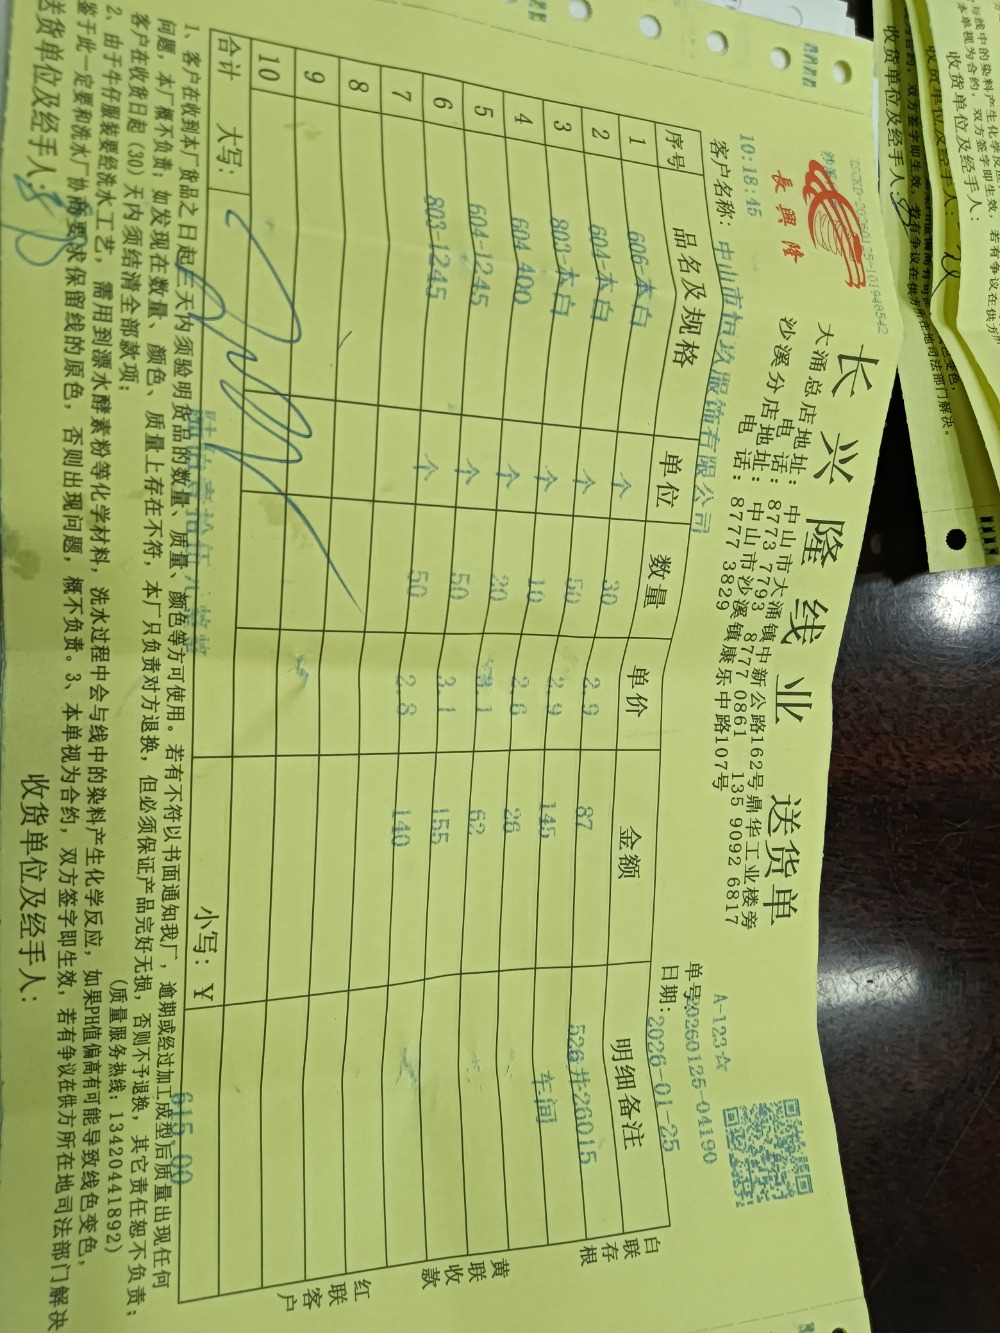 长兴隆线业 送货单
長興隆
沙溪
大涌总店地址: 中山市大涌镇中新公路162号鼎华工业楼旁
电 话: 8773 7793 8777 0861 135 9092 6817
沙溪分店地址: 中山市沙溪镇康乐中路107号
电 话: 8777 3829
A-123☆
10:18:45
单号:20260125-04190
客户名称: 中山市恒玖服饰有限公司
日期: 2026-01-25
序号 品名及规格 单位 数量 单价 金额 明细备注
1 606-本白 个 30 2.9 87 526井26015
2 604-本白 个 50 2.9 145 车间
3 803-本白 个 10 2.6 26
4 604-400 个 20 3.1 62
5 604-1245 个 50 3.1 155
6 803-1245 个 50 2.8 140
7
8
9
10
合计 大写: 小写: ¥ 615.00
白联存根
黄联收款
红联客户
1、客户在收到本厂货品之日起三天内须验明货品的数量、质量、颜色等方可使用。若有不符以书面通知我厂, 逾期或经过加工成型后质量出现任何
问题, 本厂概不负责; 如发现在数量、颜色、质量上存在不符, 本厂只负责对方退换, 但必须保证产品完好无损, 否则不予退换, 其它责任恕不负责;
客户在收货日起 (30) 天内须结清全部款项; (质量服务热线: 13420441892)
2、由于牛仔服装要经洗水工艺, 需用到漂水酵素粉等化学材料, 洗水过程中会与线中的染料产生化学反应, 如果PH值偏高有可能导致线色变色,
鉴于此一定要和洗水厂协商要求保留线的原色, 否则出现问题, 概不负责。3、本单视为合约, 双方签字即生效, 若有争议在供方所在地司法部门解决
送货单位及经手人: 收货单位及经手人: